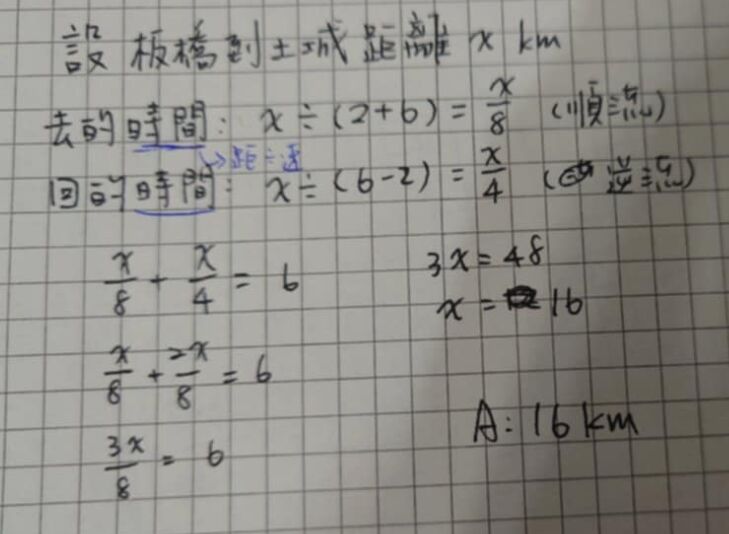 設板橋到土城距離 x km
去的時間: x÷(2+6) = x/8 (順流)
→距÷速
回的時間: x÷(6-2) = x/4 (逆流)
x/8 + x/4 = 6
x/8 + 2x/8 = 6
3x/8 = 6
3x = 48
x = 16
A: 16 km